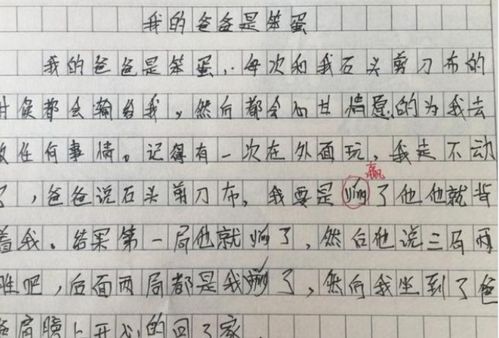 我的爸爸是笨蛋
我的爸爸是笨蛋,每次和我石头剪刀布的
时候都会输给我,然后都会心甘情愿的为我去
做任何事情。记得有一次在外面玩,我走不动
赢
了,爸爸说石头剪刀布,我要是ying了他他就背
着我。结果第一局他就ying了,然后他说三局两
胜吧,后面两局都是我ying了,然后我坐到了爸
爸肩膀上开心的回了家.